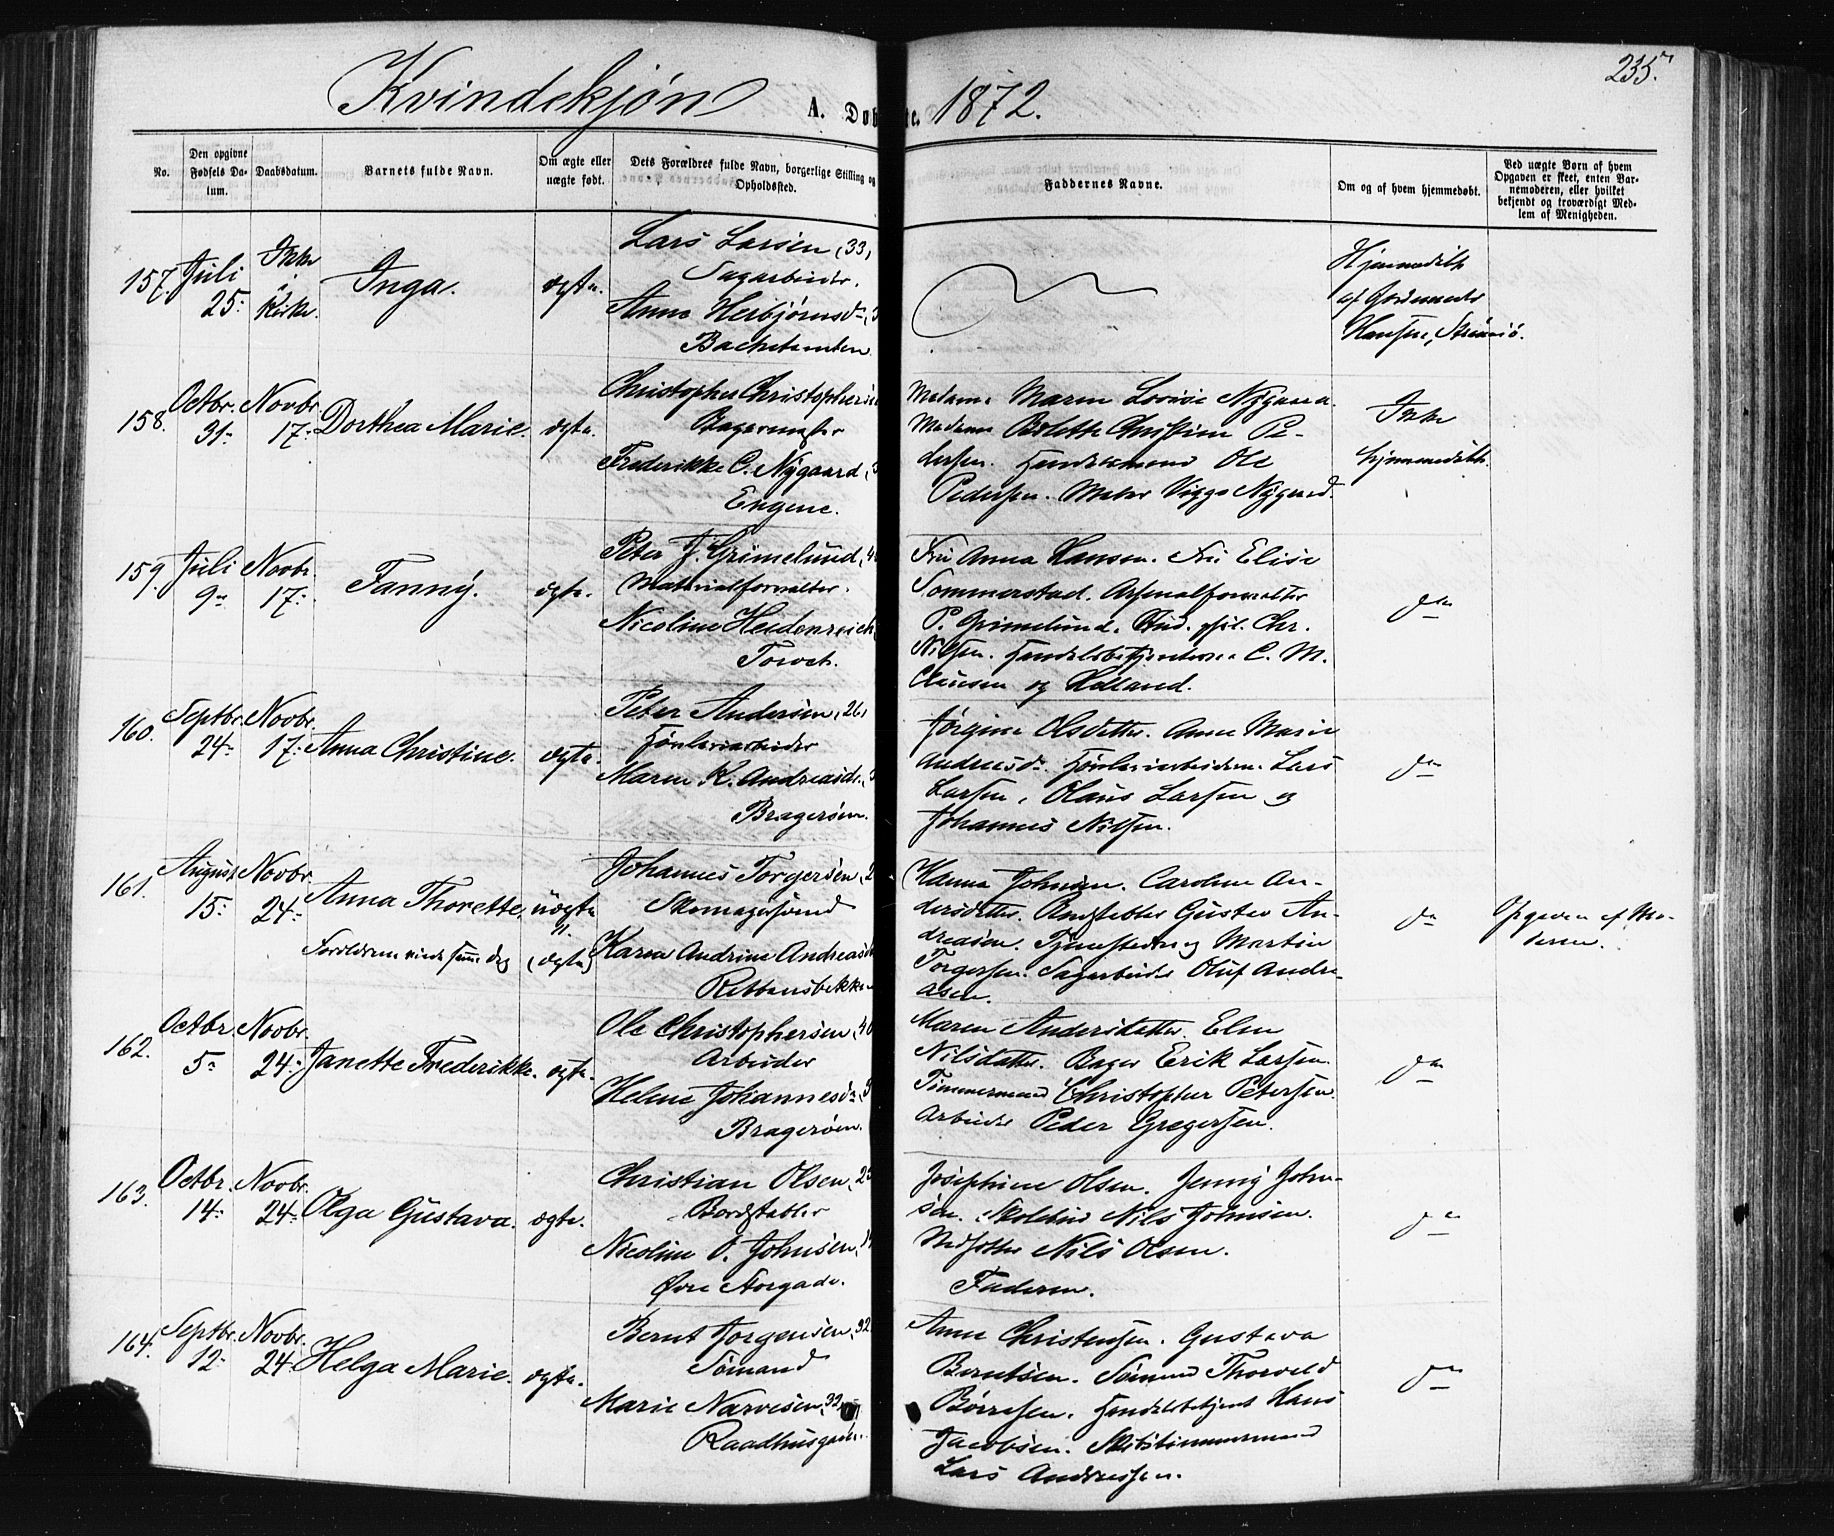 235.
Kvindekjøn A. Døbte. 1872.
No.
Den opgivne Fødsels Datum.
Daabsdatum.
Barnets fulde Navn.
Om ægte eller uægte født.
Dets Forældres fulde Navn, borgerlige Stilling og Opholdssted.
Faddernes Navne.
Om og af hvem hjemmedøbt.
Ved uægte Børn af hvem Opgaven er skeet, enten Barnemoderen, eller hvilket bekjendt og troværdigt Medlem af Menigheden.
157. Juli 25. Ikke i Kirke. Inga. ægte.
Lars Larsen, (33,
Sagarbeider.
Anne Herbjørnsdr,
Hjemmedøbt
af
Hansen, Strømsø.
158. Octbr. 31. Novbr. 17. Dorthea Marie. ægte.
Christopher Christophersen
Bagermester
Frederikke C. Nygaard,
Engene.
Madame Maren Lovise Nygaard.
Madame Bolette Christine Pe-
dersen. Handelsmand Ole
Pedersen. Maler Viggo Nygaard.
Ikke
hjemmedøbt.
159. Juli 9. Novbr. 17. Fanny. ægte.
Peter J. Grimelund,
Materialforvalter.
Nicoline Heidenreich
Torvet.
Fru Anna Hansen. Fru Elise
Sommerstad. Arsenalforvalter
P. Grimelund. Stud. phil. Chr.
Nilsen. Handelsbetjentene C. M.
Clausen og
do
160. Septbr. 24. Novbr. 17. Anna Christine. ægte.
Peter Andersen, (26,
Høvleriarbeider
Maren K. Andreasdr.,
Bragerøen.
Jørgine Olsdatter. Anne Marie
Andreasdr. Høvleriarbeiderne Lars
Larsen, Olaus Larsen og
Johannes Nilsen.
do
161. August 15. Novbr. 24. Anna Thorette. uægte
Forældrene viede samme dag (ægte)
Johannes Torgersen,
Skomagersvend
Karen Andrine Andreasdr
Rettensbekken
Hanna Johnsen. Caroline An-
dersdatter. Bordstabler Gustav An-
dreasen. og Martin
Torgersen. Sagarbeider Oluf Andre-
asen.
do
Opgaven af Mo-
deren.
162. Octbr. 5. Novbr. 24. Janette Frederikke. ægte.
Ole Christophersen, 40
Arbeider
Helene Johannesdr.,
Bragerøen.
Maren Andersdatter. Elen
Nilsdatter. Bager Erik Larsen.
Tømmermand Christopher Petersen.
Arbeider Peder Gregersen.
do
163. Octbr. 14. Novbr. 24. Olga Gustava. ægte.
Christian Olsen,
Bordstabler
Nicoline O. Johnsen,
Øvre Storgade.
Josephine Olsen. Jenny John-
sen. Nils Johnsen.
Nils Olsen.
Faderen.
do
164. Septbr. 12. Novbr. 24. Helga Marie. ægte.
Bernt Jørgensen, 32
Sømand
Marie Narvesen, 32,
Raadhusgaden.
Anne Christensen. Gustava
Berntsen. Sømand Thorvald
Børresen. Handelsbetjent Hans
Jacobsen. Skibstømmermand
Lars Andreassen.
do